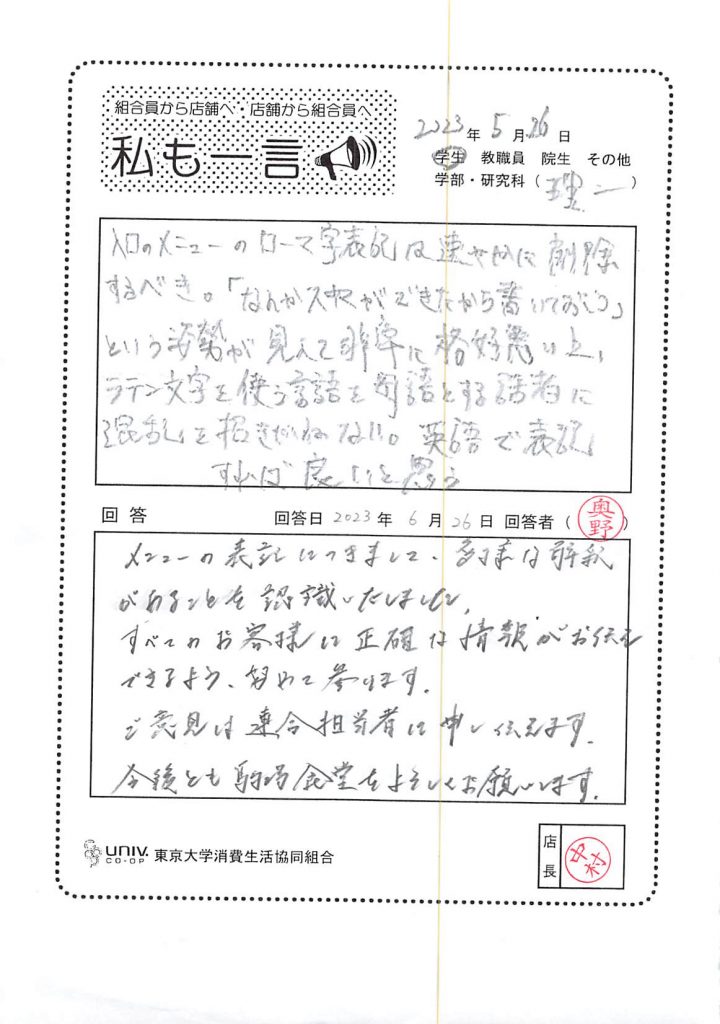 組合員から店舗へ・店舗から組合員へ
私も一言
2023年 5月 26日
学生 教職員 院生 その他
学部・研究科（ 理二 ）
入口のメニューのローマ字表記は速やかに削除
するべき。「なんかスキマができたから書いておこう」
という姿勢が見えて非常に格好悪い上、
ラテン文字を使う言語を母語とする話者に
混乱を招きかねない。英語で表記
すれば良いと思う
回答 回答日 2023年 6月 26日 回答者（ 奥野 ）
メニューの表記につきまして、多様な解釈
があることを認識いたしました。
すべてのお客様に正確な情報がお伝え
できるよう、努めて参ります。
ご意見は連合担当者に申し伝えます。
今後とも駒場食堂をよろしくお願いします。
UNIV. CO-OP 東京大学消費生活協同組合
店長 中村